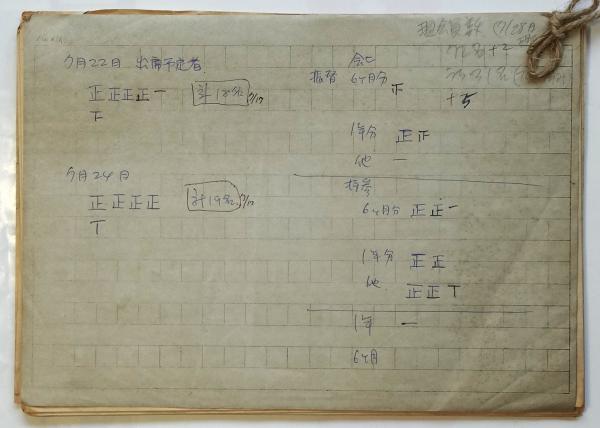 7月22日 出席予定者
正正正正一
下
計18名 7/17
7月24日
正正正正
T
計19名 7/17
会費
振替 6ヶ月分
正
1年分 正正
他 一
持参
6ヶ月分 正正一
1年分 正正
他 正正T
1年 一
6ヶ月
現会員数 (7/28日
+2
+5